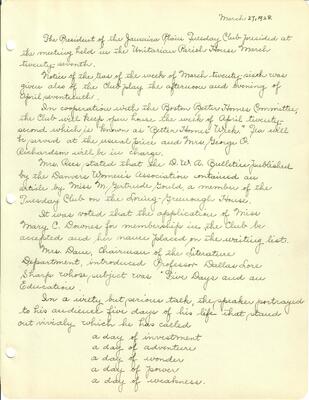 March 27, 1928
The President of the Jamaica Plain Tuesday Club presided at
the meeting held in the Unitarian Parish House March
twenty-seventh.
Notice of the teas of the week of March twenty-sixth was
given also of the Club play the afternoon and evening of
April seventeenth.
In cooperation with the Boston Better Homes Committee,
the Club will keep open house the week of April twenty-
second which is known as "Better Homes Week." Tea will
be served at the usual price and Mrs. George P.
Richardson will be in charge.
Mrs. Rees stated that the D. W. A. Bulletin published
by the Danvers Women's Association contained an
article by Miss M. Gertrude Gould, a member of the
Tuesday Club on the Loring-Greenough House.
It was voted that the application of Miss
Mary C. Downes for membership in the Club be
accepted and her name placed on the waiting list.
Mrs. Dane, Chairman of the Literature
Department, introduced Professor Dallas Lore
Sharp whose subject was "Five Days and an
Education."
In a witty but serious talk, the speaker portrayed
to his audience five days of his life that stand
out vividly which he has called
a day of investment
a day of adventure
a day of wonder
a day of power
a day of weakness.